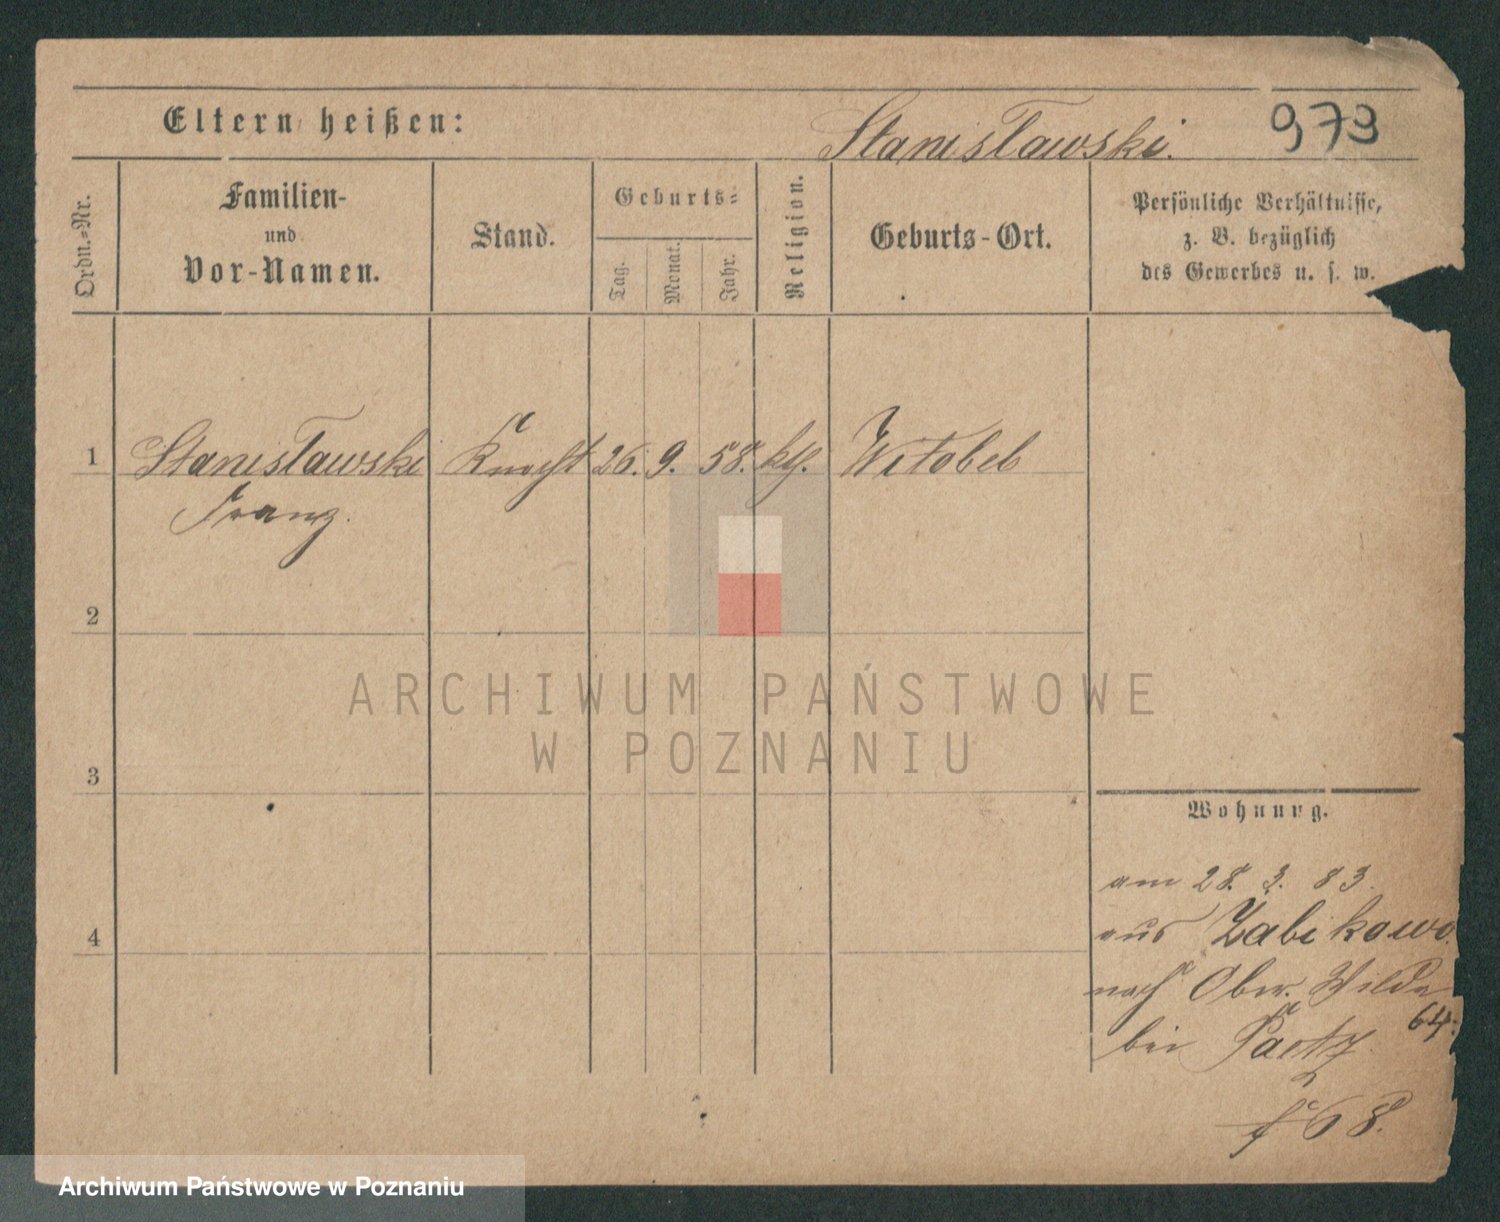 Eltern heißen:
Stanisławski.
973
Ordn.-Nr.
Familien-
und
Vor-Namen.
Stand.
Geburts-
Tag.
Monat.
Jahr.
Religion.
Geburts-Ort.
Persönliche Verhältnisse,
z. B. bezüglich
des Gewerbes u. s. w.
1 Stanisławski Knecht 26. 9. 58. kth. Witobel
Franz.
2
3
4
ARCHIWUM PAŃSTWOWE
W POZNANIU
Wohnung.
am 28. 3. 83.
aus Zabikowo
nach Ober. Wilda
64.
bei Paetz
68.
Archiwum Państwowe w Poznaniu